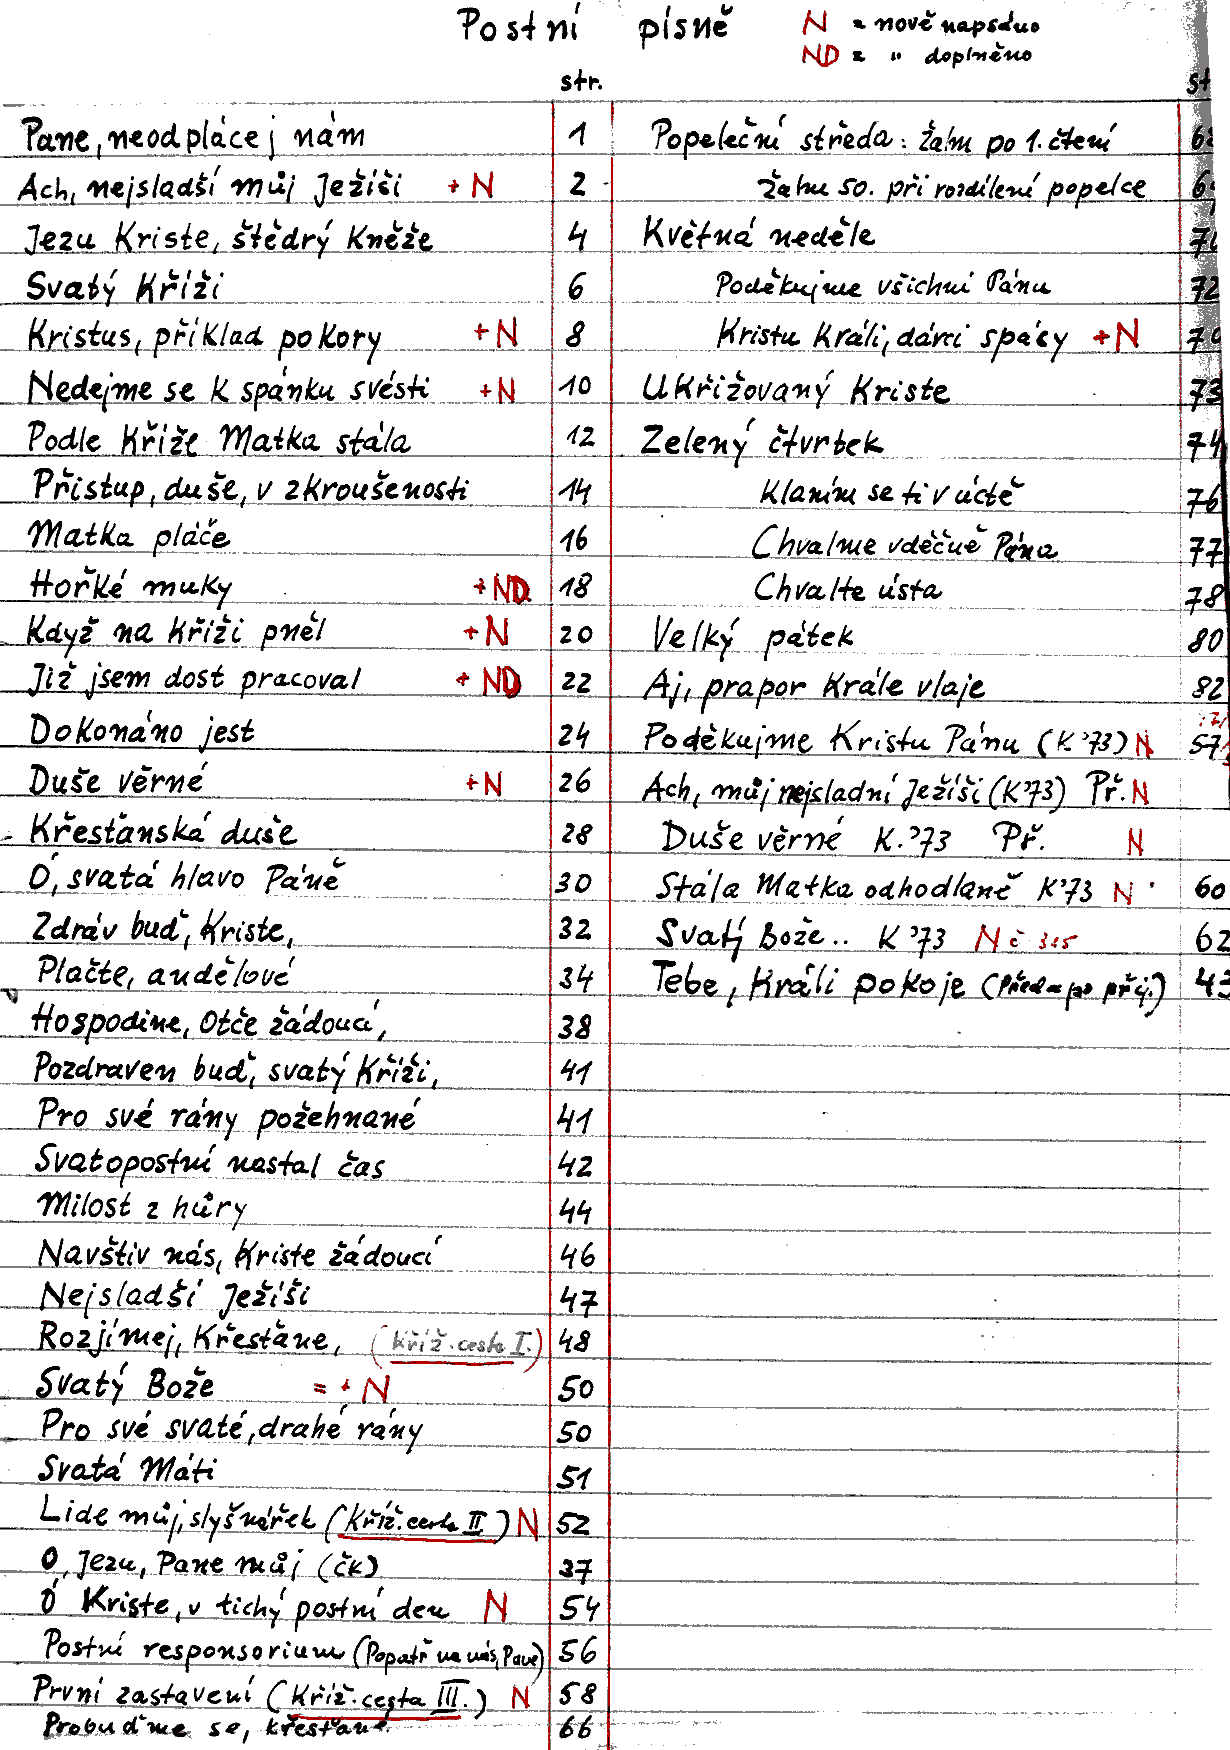 Postní písně N = nově napsáno
ND = " doplněno
str.
Pane, neodplácej nám 1
Ach, nejsladší můj Ježíši + N 2
Jezu Kriste, štědrý kněže 4
Svatý Kříži 6
Kristus, příklad pokory + N 8
Nedejme se k spánku svésti + N 10
Podle Kříže Matka stála 12
Přistup, duše, v zkroušenosti 14
Matka pláče 16
Hořké muky + ND 18
Když na kříži pněl + N 20
Již jsem dost pracoval + ND 22
Dokonáno jest 24
Duše věrné + N 26
Křesťanská duše 28
Ó, svatá hlavo Páně 30
Zdráv buď, Kriste, 32
Plačte, andělové 34
Hospodine, Otče žádoucí, 38
Pozdraven buď, svatý Kříži, 41
Pro své rány požehnané 41
Svatopostní nastal čas 42
Milost z hůry 44
Navštiv nás, Kriste žádoucí 46
Nejsladší Ježíši 47
Rozjímej, Křesťane, (Kříž. cesta I.) 48
Svatý Bože = + N 50
Pro své svaté, drahé rány 50
Svatá Máti 51
Lide můj, slyš nářek (Kříž. cesta II) N 52
Ó, Jezu, Pane můj (čk) 37
Ó Kriste, v tichý postní den N 54
Postní responsorium (Popatř na nás, Pane) 56
První zastavení (Kříž. cesta III.) N 58
Probuďme se, křesťané 66
st
Popeleční středa: Žalm po 1. čtení
Žalm 50. při rozdílení popelce
Květná neděle
Poděkujme všichni Pánu 72
Kristu Králi, dárci spásy + N
Ukřižovaný Kriste 73
Zelený čtvrtek 74
Klaním se ti v úctě 76
Chvalme vděčně Pána 77
Chvalte ústa 78
Velký pátek 80
Aj, prapor Krále vlaje 82
Poděkujme Kristu Pánu (K '73) N 57
Ach, můj nejsladní Ježíši (K '73) Př. N
Duše věrné K. '73 Př. N
Stála Matka odhodlaně K '73 N 60
Svatý Bože.. K '73 N č 315 62
Tebe, Králi pokoje (Před a po přij.) 43